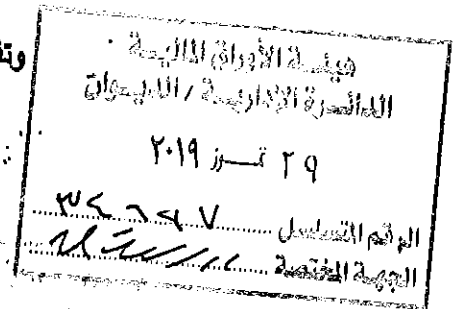 وتق
هيئة الأوراق المالية
الدائرة الإدارية / الديوان
٢٩ تموز ٢٠١٩
الرقم المتسلسل
الجهة المختصة